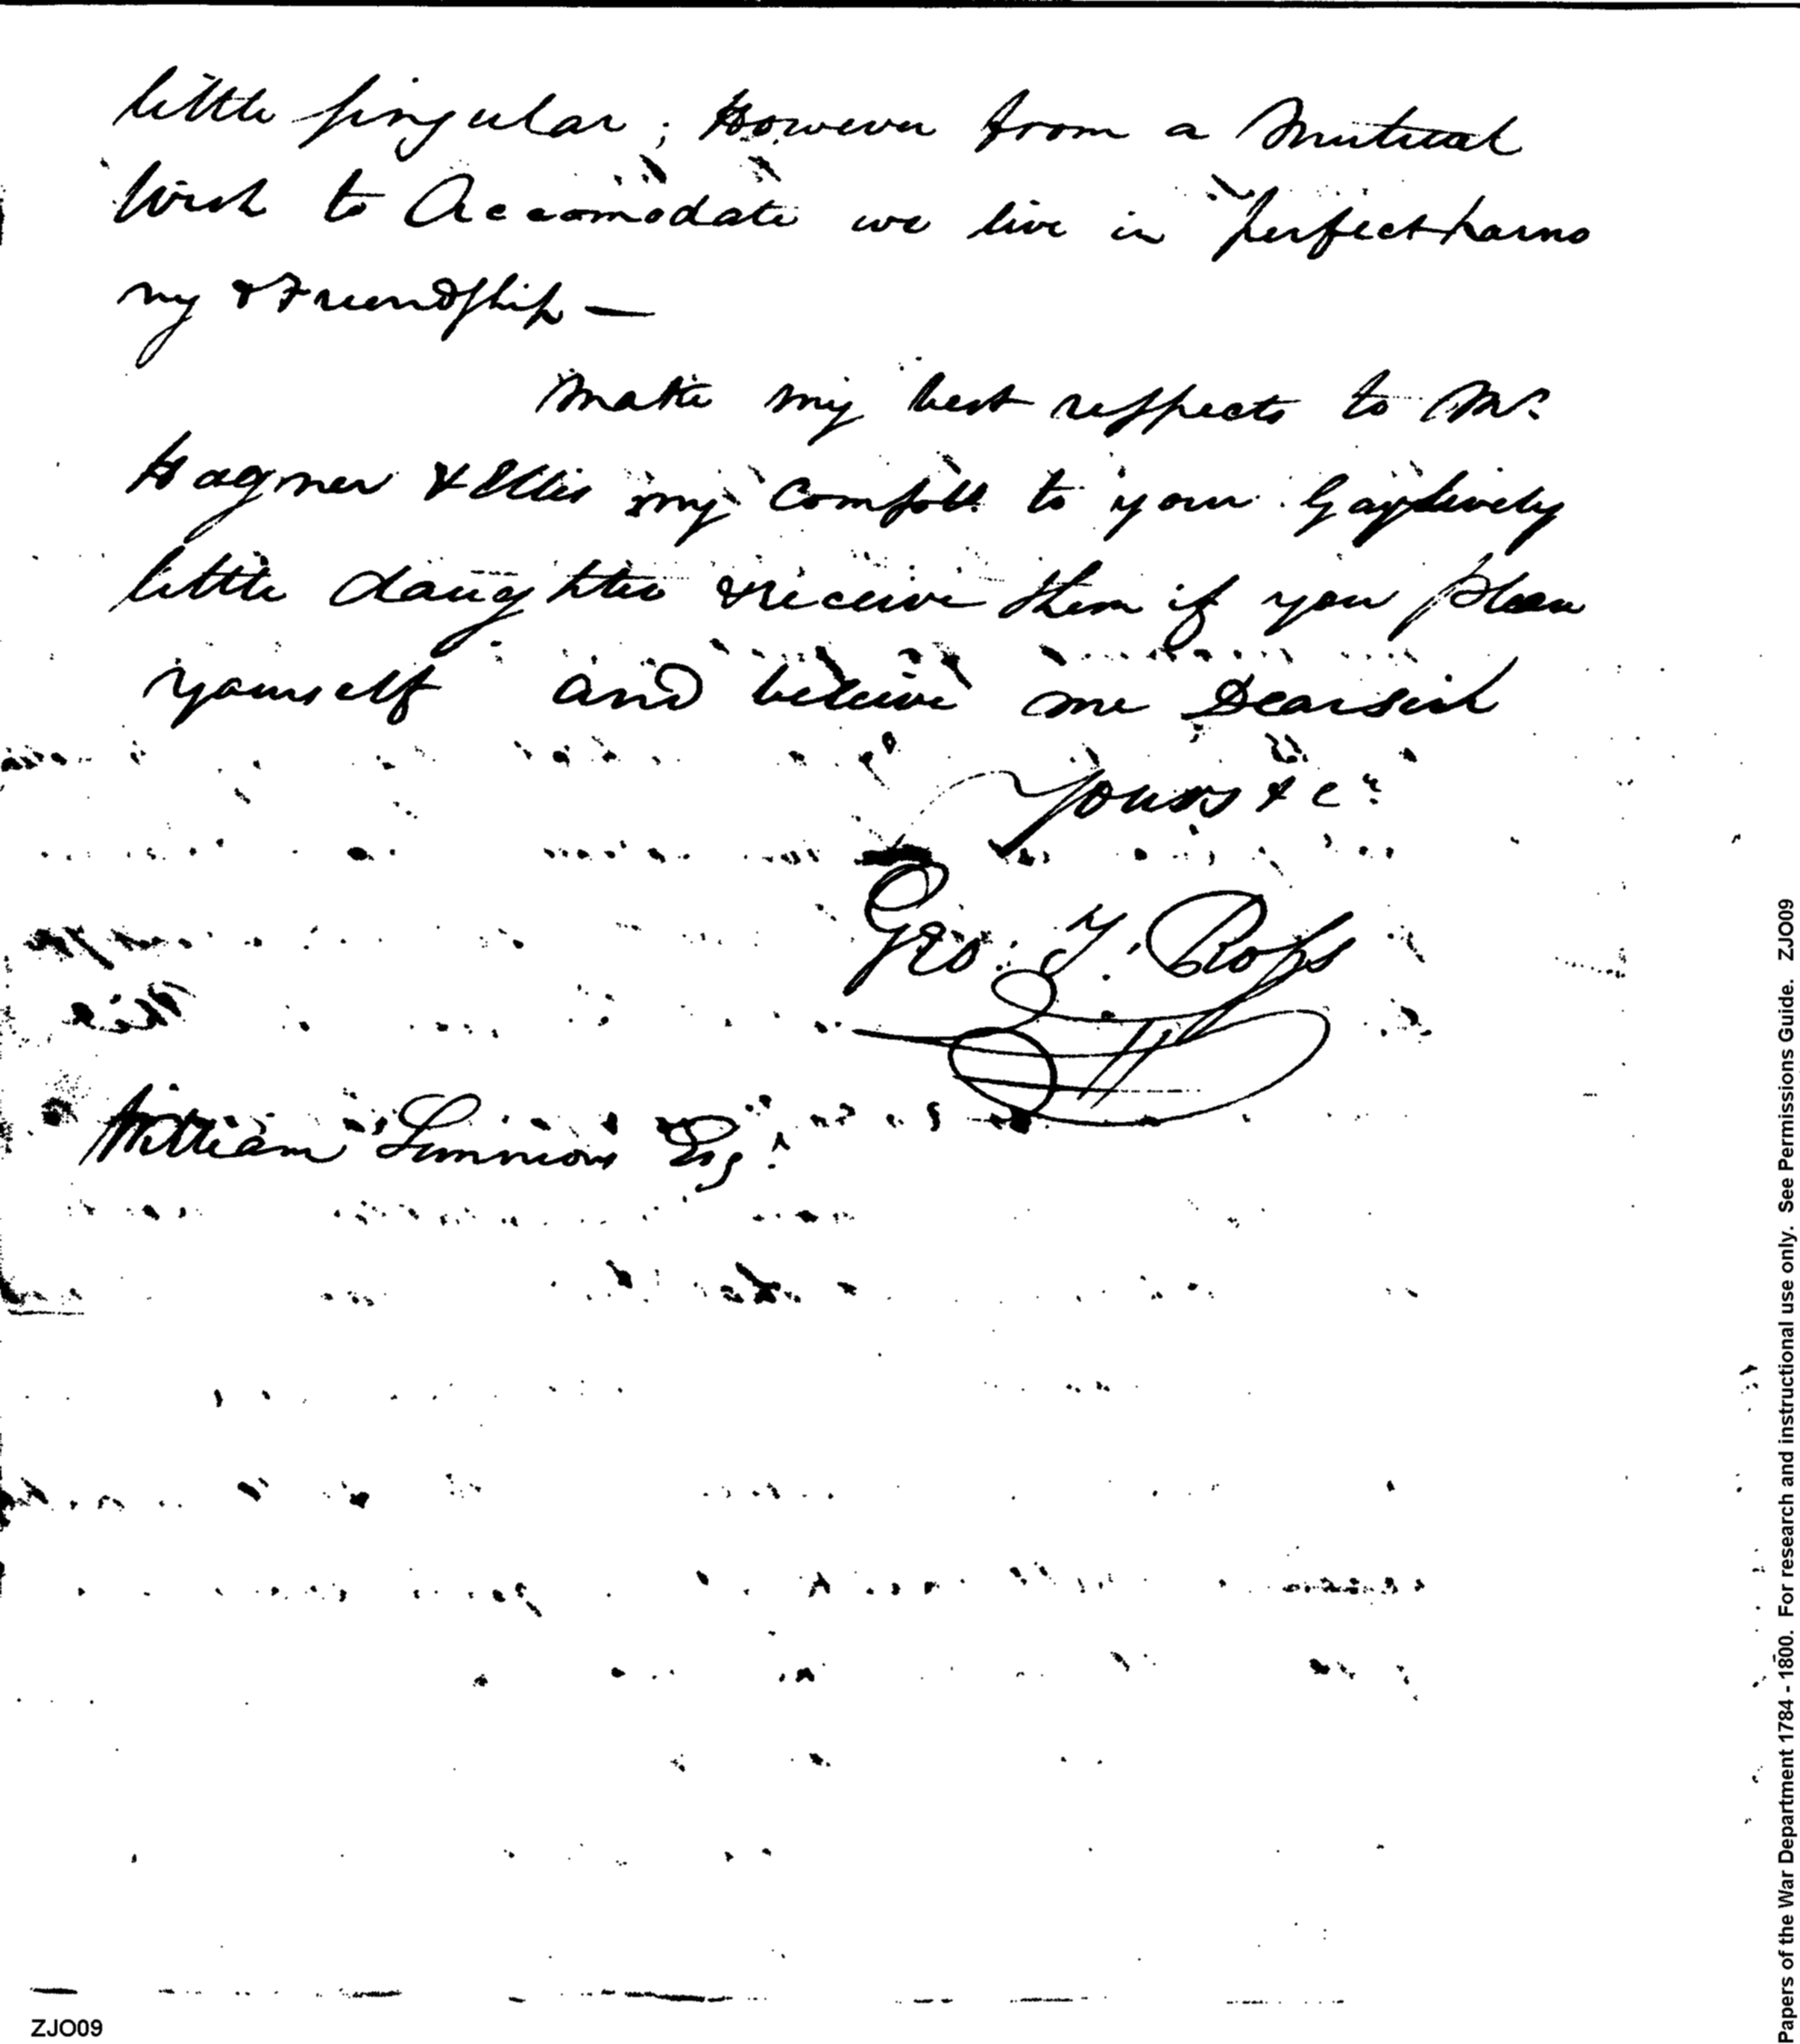 little singular; However from a Mutual
Wish to Accomodate we live in perfect harmo
ny & Friendship —
Make my best respects to Mr
Hagner & Ellis my Complts to your Gay lively
little daughter & receive them if you please
yourself and believe me Dear sir
Yours &c
Geo: T. Ross
William Simmons Esq
ZJO09
Papers of the War Department 1784 - 1800. For research and instructional use only. See Permissions Guide. ZJO09